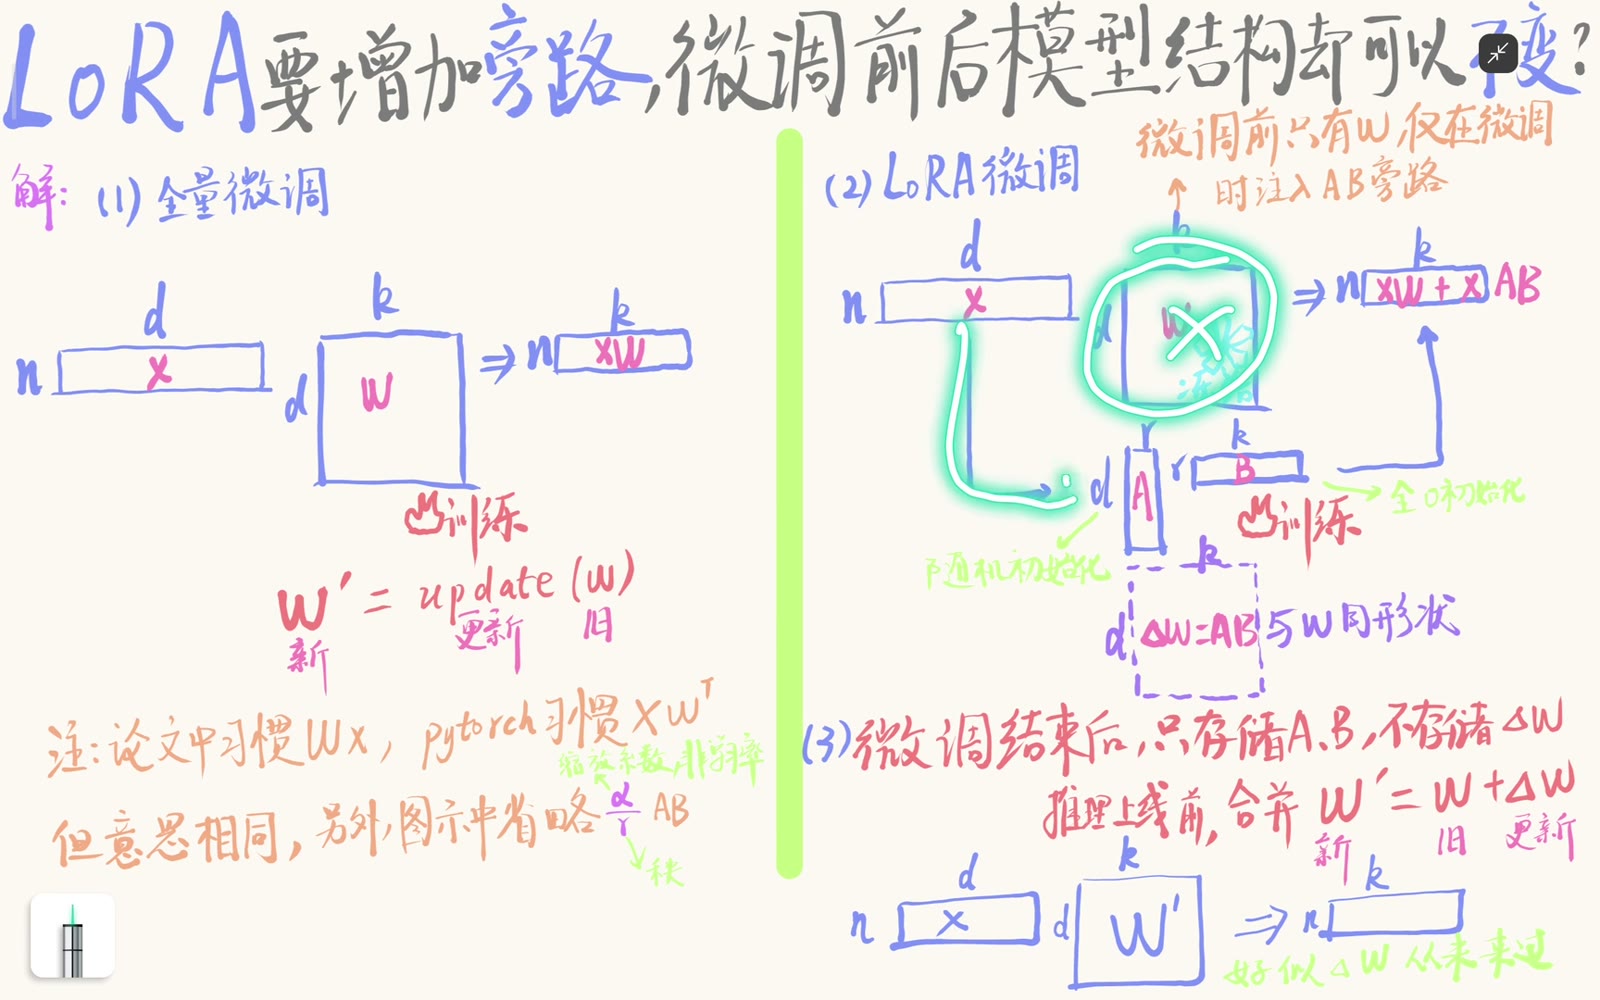 LoRA要增加旁路,微调前后模型结构却可以不变?
解:(1)全量微调
d
k
n
x
d
W
⇒
n
k
xW
训练
W′= update (W)
新 更新 旧
注:论文中习惯Wx, pytorch习惯XWᵀ
缩放系数,非学习率
但意思相同,另外,图示中省略 α/r AB
秩
(2)LoRA微调
微调前只有W,仅在微调
时注入AB旁路
d
k
n
x
d
W
冻结
⇒
n
k
xW+xAB
d
r
A
r
k
B
随机初始化
全0初始化
训练
k
d
ΔW=AB 与W同形状
(3)微调结束后,只存储A、B,不存储ΔW
推理上线前,合并 W′=W+ΔW
新 旧 更新
d
k
n
x
d
W′
⇒
n
k
好似ΔW从未来过